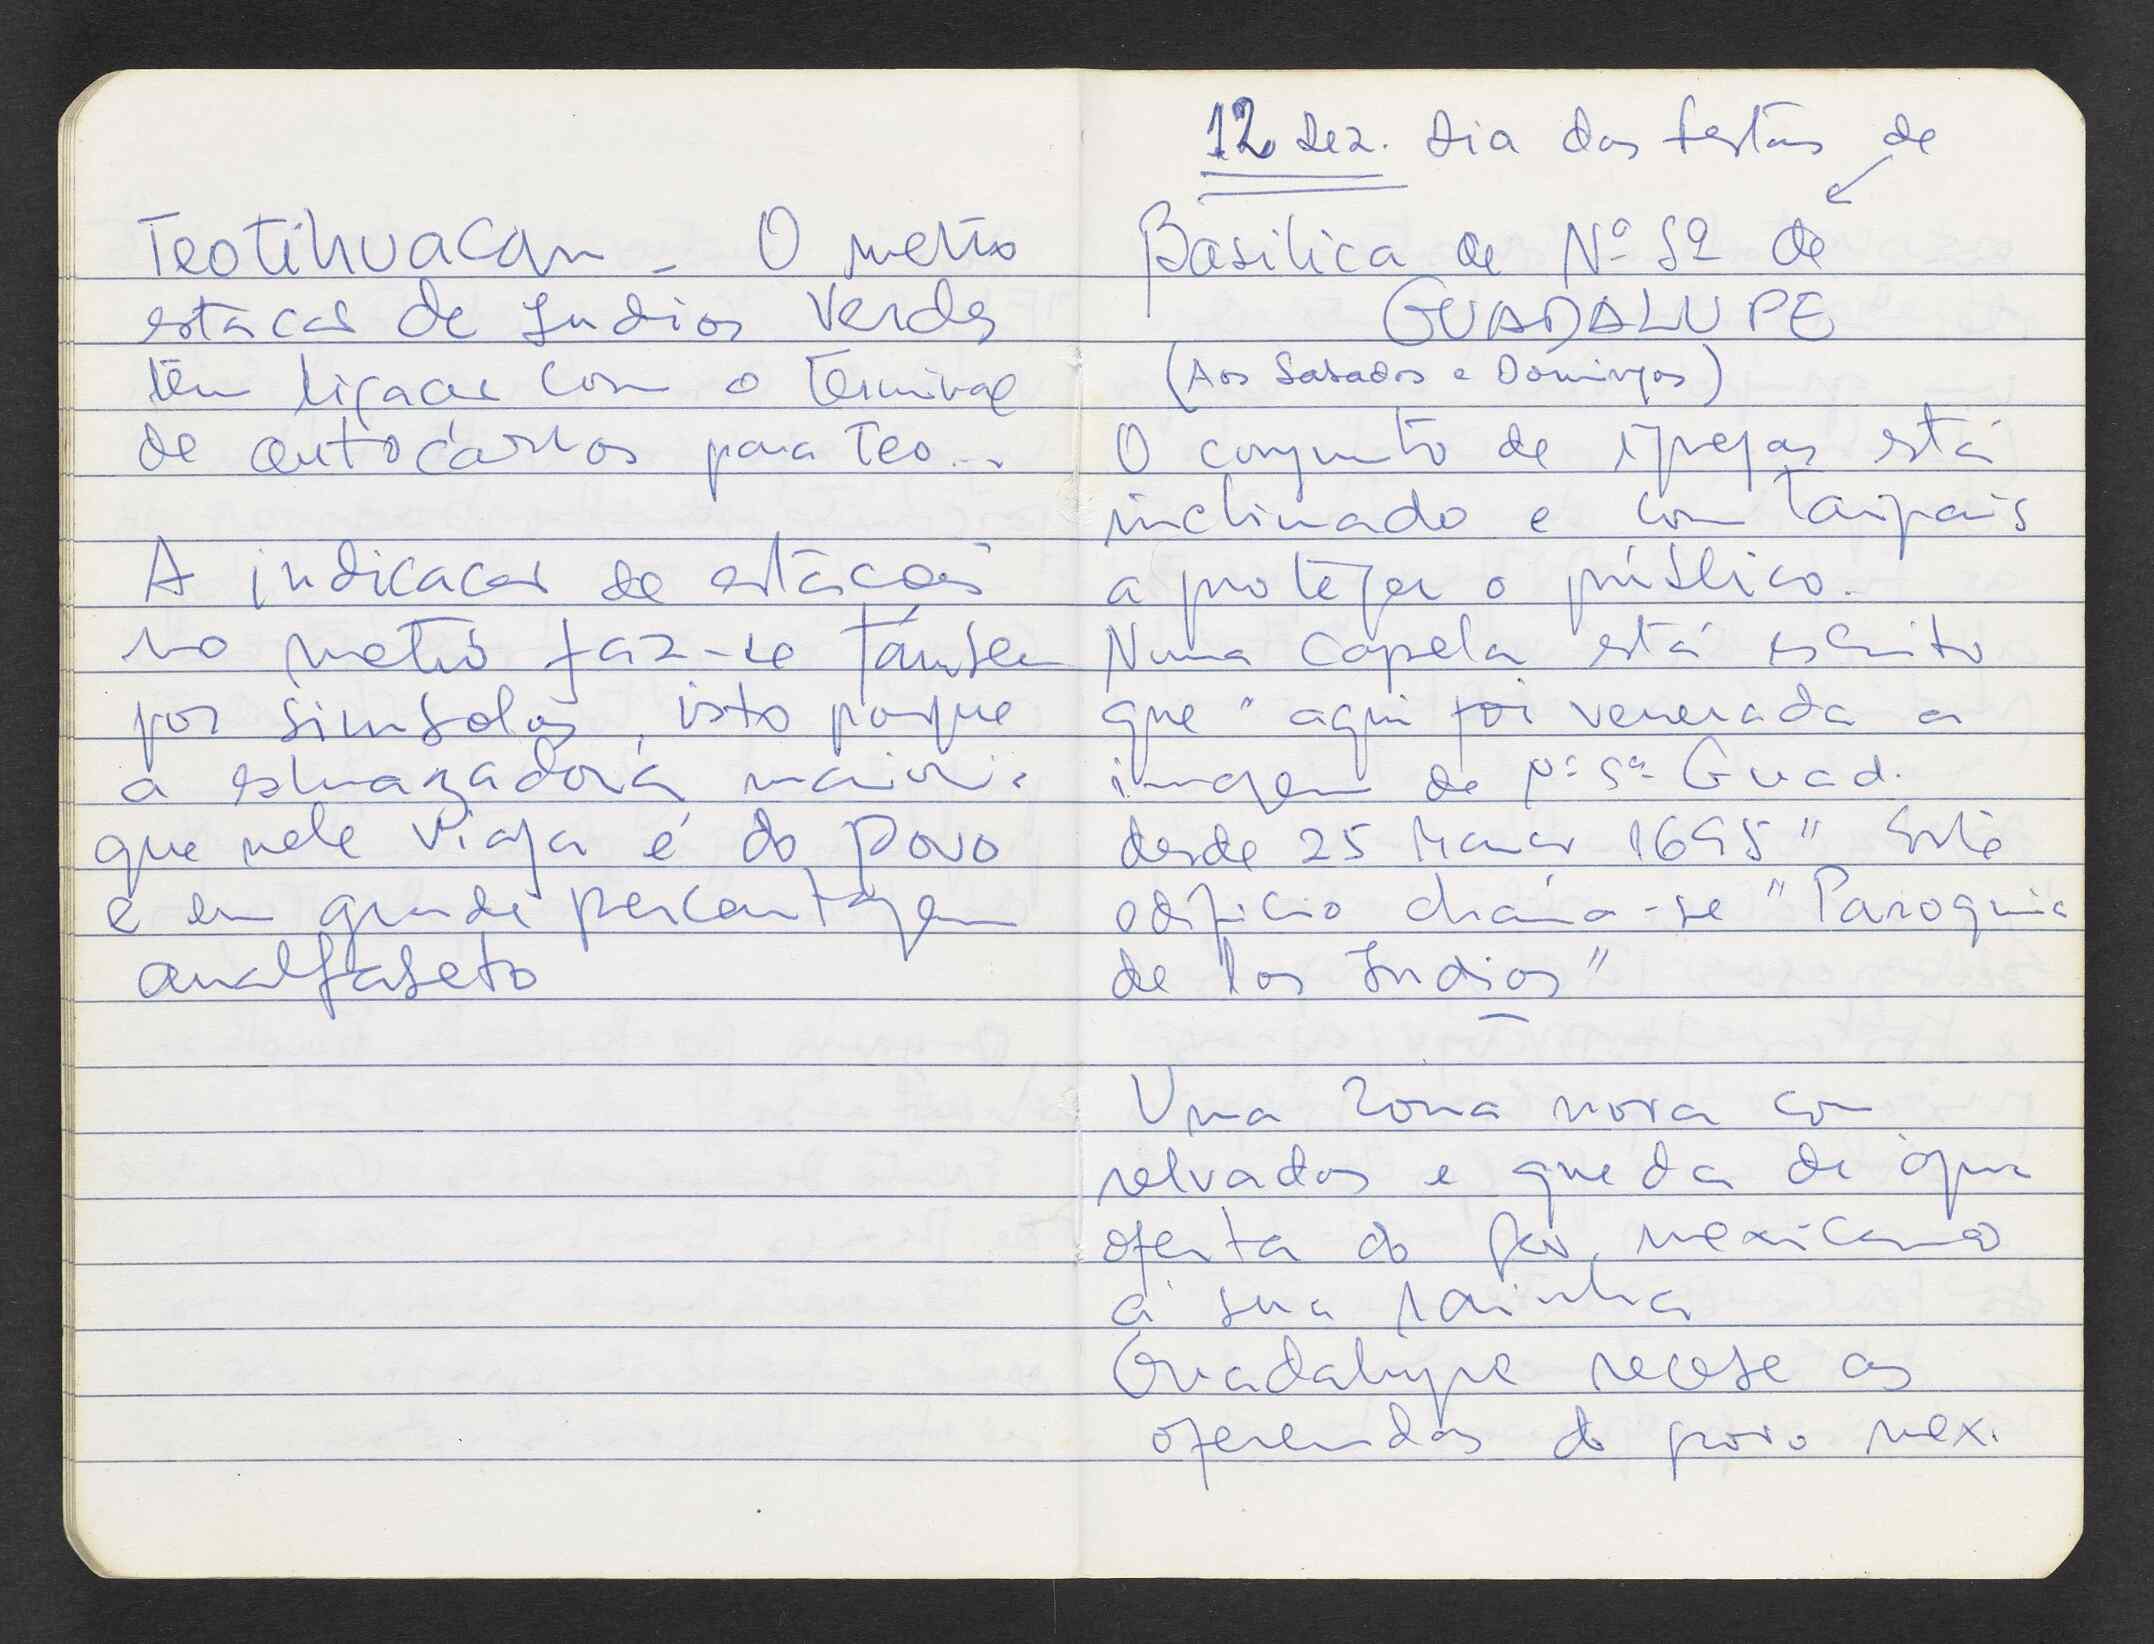 Teotihuacan - O metro
estacao de Indios Verdes
têm ligacao com o terminal
de autocárros para Teo...
A indicacao de estacoes
no metro faz-se támbem
por simbolos, isto porque
a esmagadora maioria
que nele viaja é do povo
e em grande percentagem
analfabeto
12 Dez. Dia das festas de
Basilica de Nª Sª de
GUADALUPE
(Aos Sabados e Domingos)
O conjunto de igrejas está
inclinado e com taipais
a proteger o público.
Numa capela está escrito
que "aqui foi venerada a
imagem de Nª Sª Guad.
desde 25 Março 1695" Este
edificio cháma-se "Paroquia
de los Indios"
Uma zona nova com
relvados e queda de água
oferta do gov. mexicano
á sua rainha
Guadalupe recebe as
oferendas do povo mex.